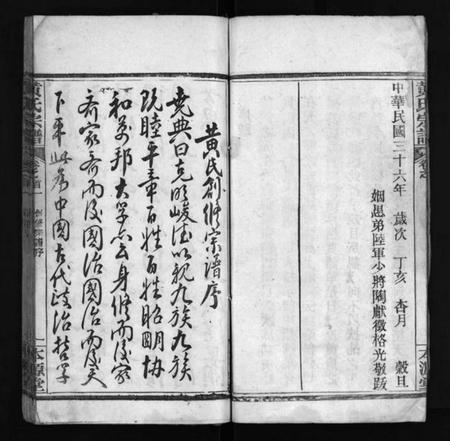 黃氏宗譜
中華民國三十六年 歲次 丁亥 杏月 穀旦
姻愚弟陸軍少將陶獻徵格光敬跋
本源堂
黃氏創修宗譜序
堯典曰克明峻德以親九族九族
既睦平章百姓百姓昭明協
和萬邦大學亦云身修而後家
齊家齊而後國治國治而後天
下平此為中國古代政治哲學
黃氏宗譜
卷首
本源堂